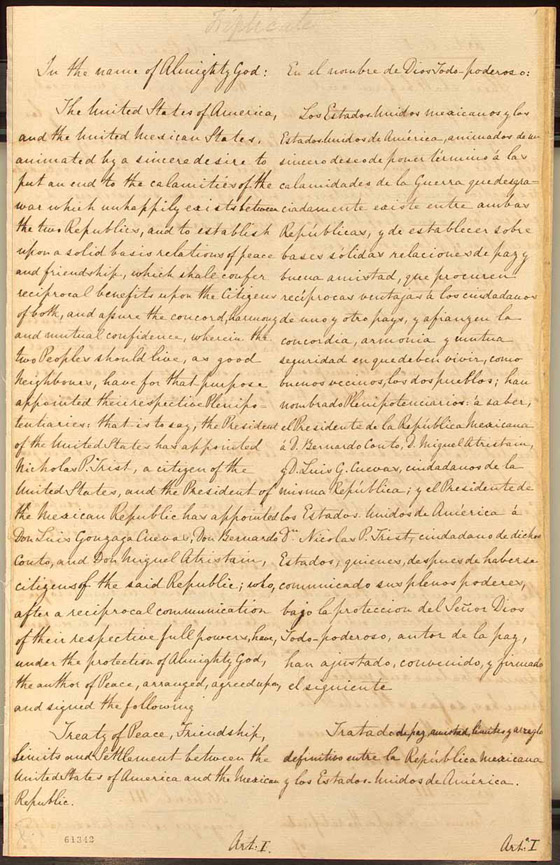 Triplicate
In the name of Almighty God:
The United States of America,
and the United Mexican States,
animated by a sincere desire to
put an end to the calamities of the
war which unhappily exists between
the two Republics, and to establish
upon a solid basis relations of peace
and friendship, which shall confer
reciprocal benefits upon the Citizens
of both, and assure the concord, harmony
and mutual confidence, wherein the
two Peoples should live, as good
Neighbours, have for that purpose
appointed their respective Plenipo-
tentiaries: that is to say, the President
of the United States has appointed
Nicholas P. Trist, a citizen of the
United States, and the President of
the Mexican Republic has appointed
Don Luis Gonzaga Cuevas, Don Bernardo
Couto, and Don Miguel Atristain,
citizens of the said Republic; who,
after a reciprocal communication
of their respective full powers, have,
under the protection of Almighty God,
the author of Peace, arranged, agreed upon,
and signed the following
Treaty of Peace, Friendship,
Limits and Settlement between the
United States of America and the Mexican
Republic.
61342
Art: I.
En el nombre de Dios Todo-poderoso:
Los Estados Unidos mexicanos y los
Estados Unidos de América, animados de un
sincero deseo de poner término á las
calamidades de la Guerra que desgra-
ciadamente existe entre ambas
Repúblicas, y de establecer sobre
bases sólidas relaciones de paz y
buena amistad, que procuren
recíprocas ventajas á los ciudadanos
de uno y otro pays, y afianzen la
concordia, armonía y mutua
seguridad en que deben vivir, como
buenos vecinos, los dos pueblos; han
nombrado Plenipotenciarios: á saber,
el Presidente de la República Mexicana
á D. Bernardo Couto, D. Miguel Atristain,
y D. Luis G. Cuevas, ciudadanos de la
misma República; y el Presidente de
los Estados Unidos de América á
Dn Nicolas P. Trist, ciudadano de dichos
Estados; quienes, despues de haberse
comunicado sus plenos poderes,
bajo la proteccion del Señor Dios
Todo-poderoso, autor de la paz,
han ajustado, convenido, y firmado
el siguiente
Tratado de paz, amistad, limites y arreglo
definitivo entre la República Mexicana
y los Estados Unidos de América.
Art.o I